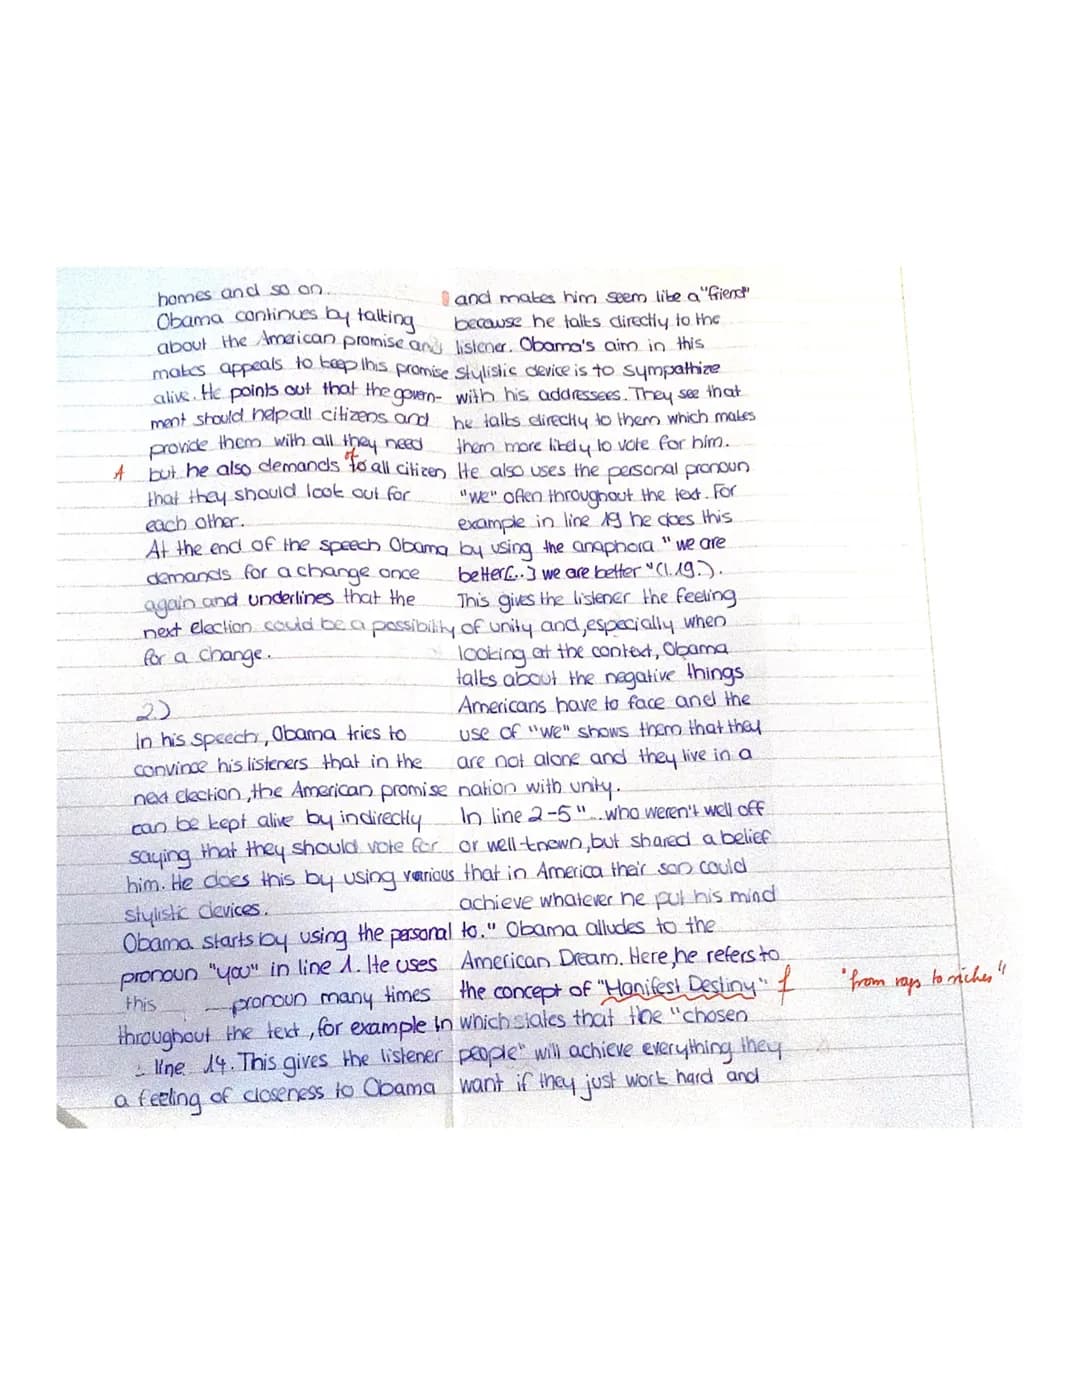 homes and so on.
Obama continues by talking
about the American promise and
makes appeals to keep this promise
alive. He points out that the govern-
ment should help all citizens and
provide them with all they need
A
but he also demands to all citizen
of
that they should look out for
each other.
At the end of the speech Obama
demands for a change once
again and underlines that the
next election could be a possibility
for a change.
2.)
In his speech, Obama tries to
convince his listeners that in the
next election, the American promise
can be kept alive by indirectly
saying that they should vote for
him. He does this by using various
stylistic devices.
Obama starts by using the personal
pronoun "you" in line 1. He uses
this pronoun many times
throughout the text, for example in
line 14. This gives the listener
a feeling of closeness to Obama
and makes him seem like a "friend"
because he talks directly to the
listener. Obama's aim in this
stylistic device is to sympathize
with his addressees. They see that
he talks directly to them which makes
them more likely to vote for him.
He also uses the personal pronoun
"we" often throughout the text. For
example in line 19 he does this
by using the anaphora "we are
better[...] we are better" (l. 19.).
This gives the listener the feeling
of unity and, especially when
looking at the context, Obama
talks about the negative things
Americans have to face and the
use of "we" shows them that they
are not alone and they live in a
nation with unity.
In line 2-5 "...who weren't well off
or well-known, but shared a belief
that in America their son could
achieve whatever he put his mind
to." Obama alludes to the
American Dream. Here, he refers to
the concept of "Manifest Destiny" f
"from rags to riches"
which states that the "chosen
people" will achieve everything they
want if they just work hard and